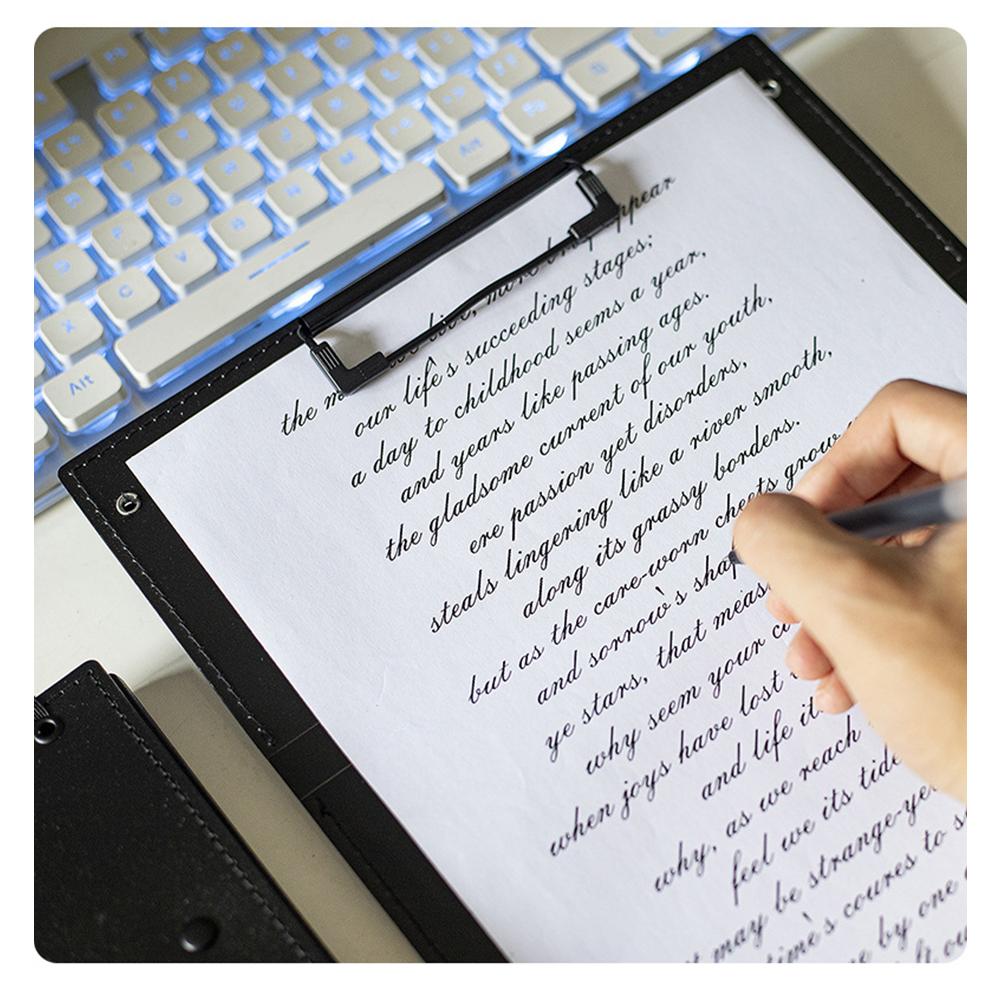 Alt
M
N
V
C
X
Alt
the live, more appear
our life's succeeding stages:
a day to childhood seems a year,
and years like passing ages.
the gladsome current of our youth,
ere passion yet disorders,
steals lingering like a river smooth,
along its grassy borders.
but as the care-worn cheeks grow
and sorrow's
ye stars, that
why seem your
when joys have lost
and life
why, as we reach
feel we its tide
may be strange-yet
time's coures to
by one